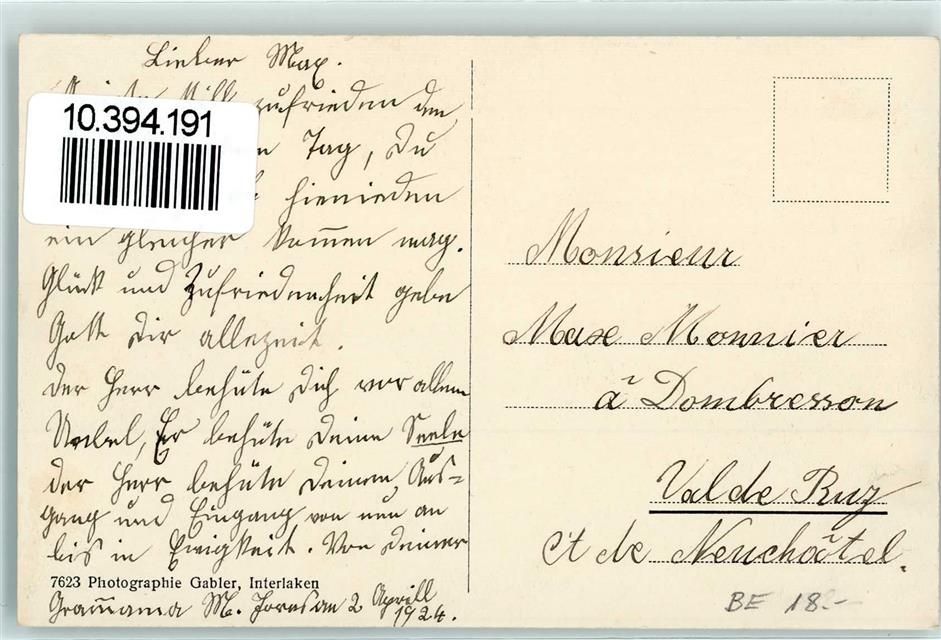 Lieber Max.
zufrieden den
Tag, Du
hienieden
ein gleicher kommen mag.
Glück und Zufriedenheit gebe
Gott Dir allezeit.
der Herr behüte Dich vor allem
Uebel, Er behüte Deine Seele
der Herr behüte Deinen Aus=
gang und Eingang von nun an
bis in Ewigkeit. Von Deiner
7623 Photographie Gabler, Interlaken
Gramama M. 2 Aprill
1924.
10.394.191
Monsieur
Max Monnier
à Dombresson
Val de Ruz
Ct de Neuchâtel.
BE 18.-